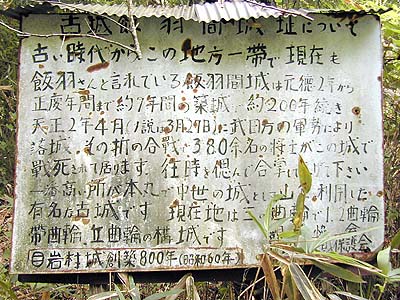 古城飯羽間城址について
古い時代からこの地方一帯で現在も
飯羽さんと言れている飯羽間城は元徳2年から
正慶年間まで約7年間の築城、約200年続き
天正2年4月(1説は3月29日)に武田方の軍勢により
落城、その折の合戦で380余名の将士がこの城で
戦死されて居ります。往時を偲んで合掌して下さい
一番高い所が本丸で中世の城として山を利用した
有名な古城です 現在地は三の曲輪で1、2曲輪
帯曲輪、丘曲輪の構城です
岩村城創築800年(昭和60年) 保護会